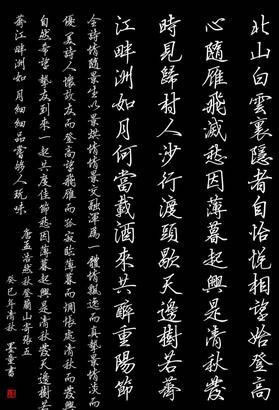 北山白雲裏隱者自怡悅相望始登高
心隨雁飛滅愁因薄暮起興是清秋發
時見歸村人沙行渡頭歇天邊樹若薺
江畔洲如月何當載酒來共醉重陽節
全詩情隨景生以景烘情情景交融渾爲一體情飄逸而真摯景清淡而
優美詩人懷故友而登高望飛雁而孤寂臨薄暮而惆悵處清秋而發興
自然希望摯友到來一起共度佳節愁因薄暮起興是清秋發天邊樹若
薺江畔洲如月細細品嘗夠人玩味
唐孟浩然秋登蘭山寄張五
癸巳年清秋 墨童書